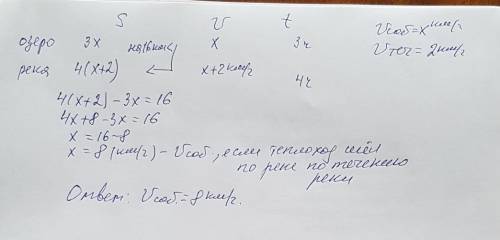 S V t
озеро 3x на 16 км < x 3ч
река 4(x+2) x+2 км/ч 4ч
Vсоб = x км/ч
Vтеч = 2 км/ч
4(x+2) - 3x = 16
4x + 8 - 3x = 16
x = 16 - 8
x = 8 (км/ч) - Vсоб, если теплоход шёл
по реке по течению
реки
Ответ: Vсоб. = 8 км/ч.